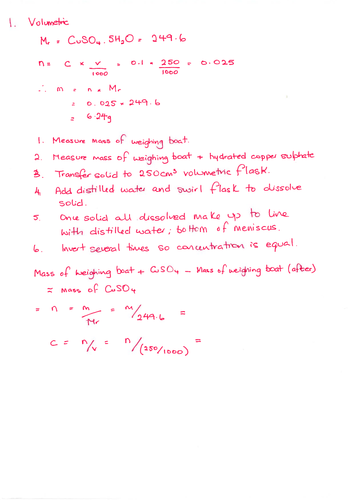 1. Volumetric
Mr = CuSO4 . 5H2O = 249.6
n = c × v/1000 = 0.1 × 250/1000 = 0.025
∴ m = n × Mr
= 0.025 × 249.6
= 6.24g
1. Measure mass of weighing boat.
2. Measure mass of weighing boat + hydrated copper sulphate
3. Transfer solid to 250cm³ volumetric flask.
4. Add distilled water and swirl flask to dissolve
solid.
5. Once solid all dissolved make up to line
with distilled water; bottom of meniscus.
6. Invert several times so concentration is equal.
Mass of weighing boat + CuSO4 - Mass of weighing boat (after)
= mass of CuSO4
= n = m/Mr = m/249.6 =
c = n/v = n/(250/1000) =